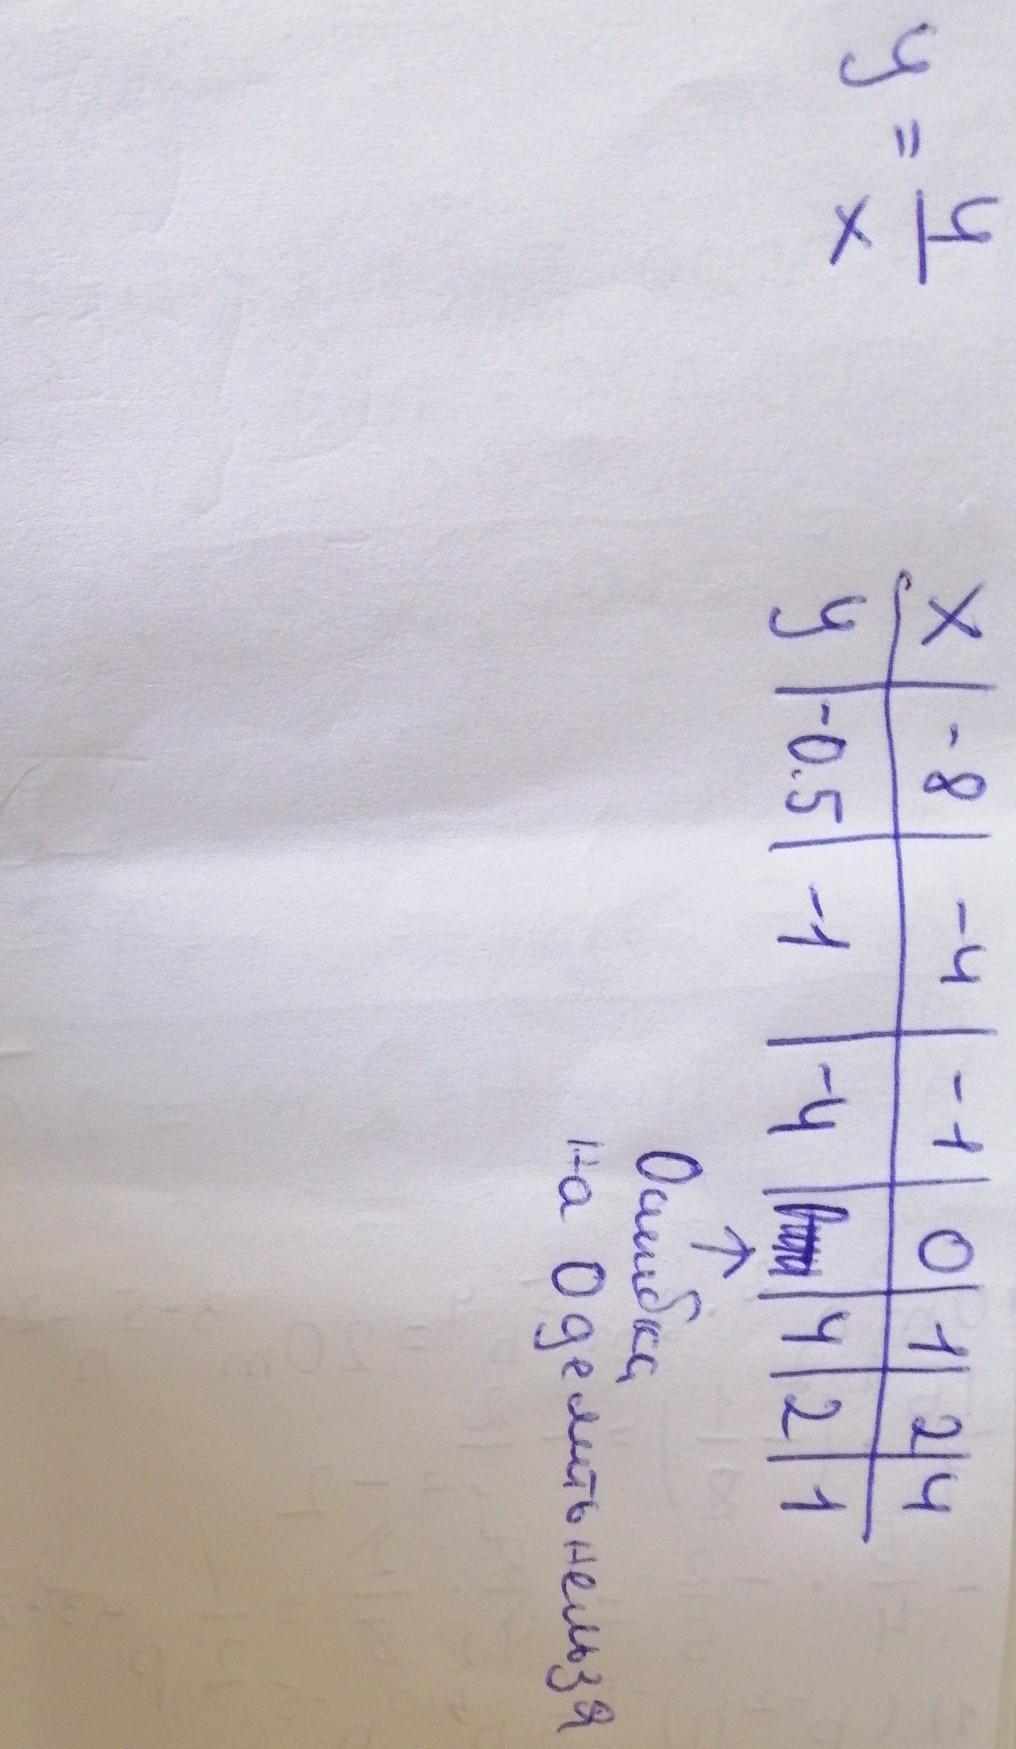 y = 4/x
x | -8 | -4 | -1 | 0 | 1 | 2 | 4
y | -0.5 | -1 | -4 | | 4 | 2 | 1
↑
Ошибка
на 0 делить нельзя